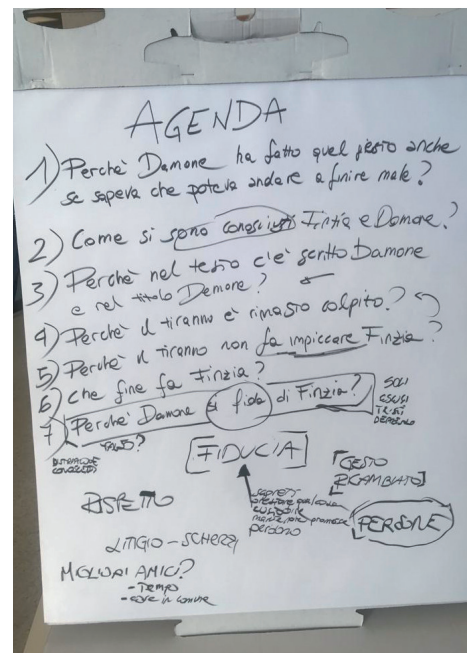 AGENDA
1) Perchè Damone ha fatto quel gesto anche
se sapeva che poteva andare a finire male?
2) Come si sono conosciuti Fintia e Damone?
3) Perchè nel testo c'è scritto Damone
e nel titolo Demone?
4) Perchè il tiranno è rimasto colpito?
5) Perchè il tiranno non fa impiccare Finzia?
6) Che fine fa Finzia?
7) Perchè Damone si fida di Finzia?
SOLI
ESCLUSI
TRISTI
FIDUCIA
GESTO
RICAMBIATO
RISPETTO
perdono
PERSONE
LITIGIO - SCHERZI
MIGLIORI AMICI?
- TEMPO
- cose in comune